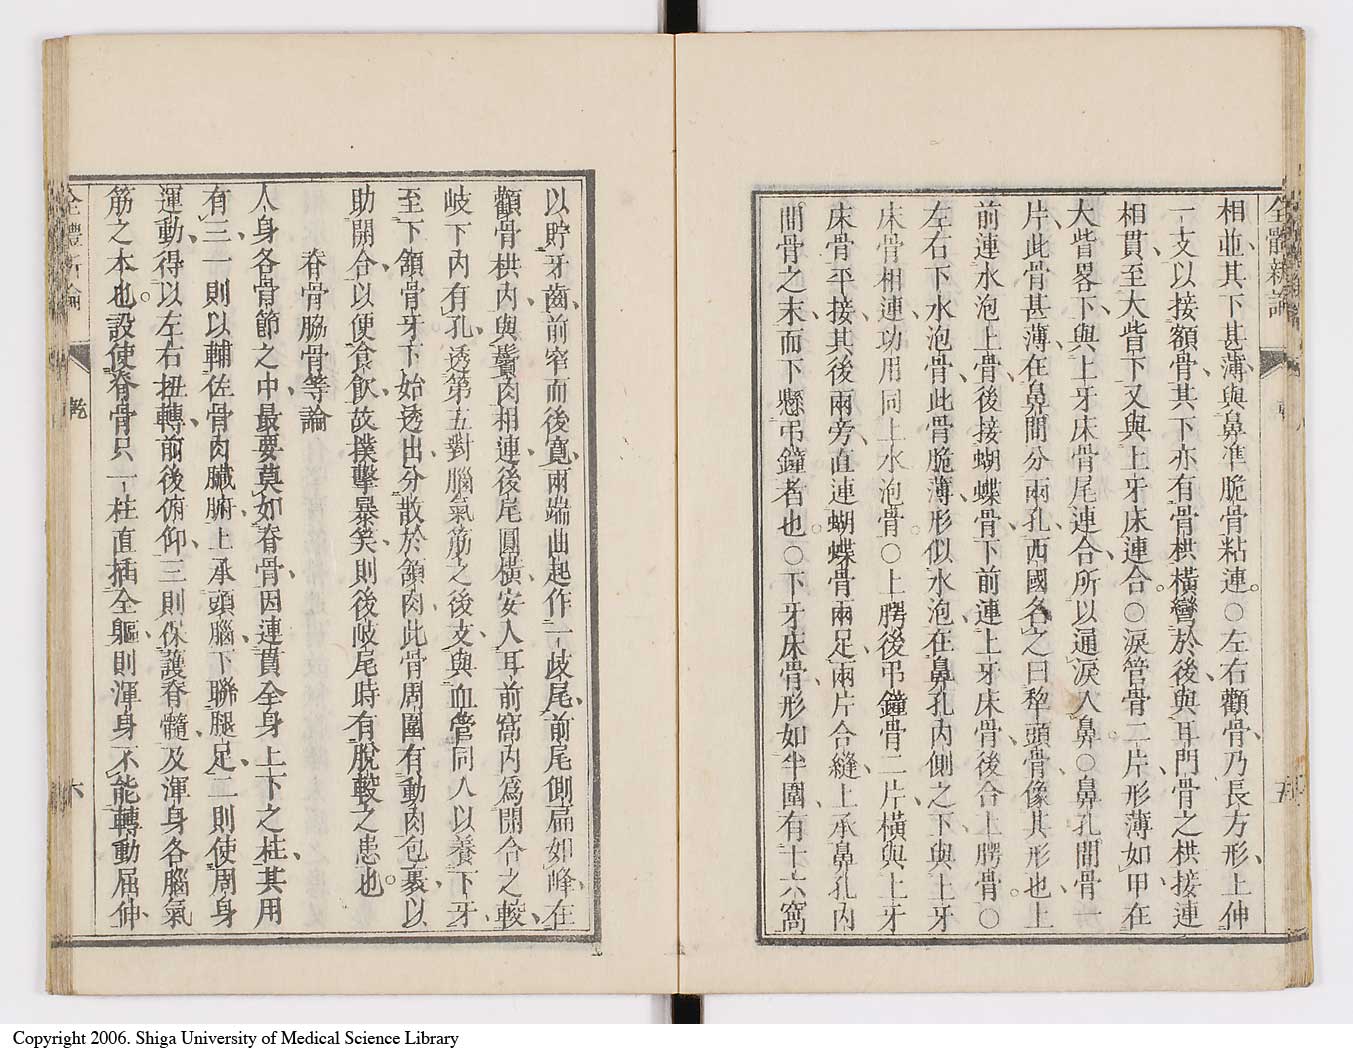 全體新論
相並、其下甚薄、與鼻準脆骨粘連。○左右顴骨、乃長方形、上伸
一支、以接額骨、其下亦有骨栱、橫彎於後、與耳門骨之栱接連
相貫、至大眥下、又與上牙床連合。○淚管骨二片、形薄如甲、在
大眥畧下、與上牙床骨尾連合、所以通淚入鼻。○鼻孔間骨一
片、此骨甚薄、在鼻間分兩孔、西國名之曰犂頭骨、像其形也、上
前連水泡上骨、後接蝴蝶骨、下前連上牙床骨、後合上腭骨。○
左右下水泡骨、此骨脆薄、形似水泡、在鼻孔內側之下、與上牙
床骨相連、功用同上水泡骨。○上腭後吊鐘骨二片、橫與上牙
床骨平接、其後兩旁直連蝴蝶骨兩足、兩片合縫、上承鼻孔內
間骨之末、而下懸吊鐘者也。○下牙床骨、形如半圍、有十六窩
以貯牙齒、前窄而後寬、兩端曲起、作一歧尾、前尾側扁如峰、在
顴骨栱內、與鬢肉相連、後尾圓橫、安入耳前窩內、爲開合之骹、
歧下內有孔、透第五對腦氣筋之後支、與血管同入、以養下牙、
至下頷骨牙下、始透出、分散於頷肉、此骨周圍有動肉包裹、以
助開合、以便食飲、故撲擊暴笑、則後歧尾時有脫骹之患也。
脊骨脇骨等論
人身各骨節之中、最要莫如脊骨、因連貫全身上下之柱、其用
有三、一則以輔佐骨肉臟腑、上承頭腦、下聯腿足、二則使周身
運動、得以左右扭轉、前後俯仰、三則保護脊髓、及渾身各腦氣
筋之本也。設使脊骨只一柱直插全軀、則渾身不能轉動屈伸、
全體新論
乾
六
Copyright 2006. Shiga University of Medical Science Library